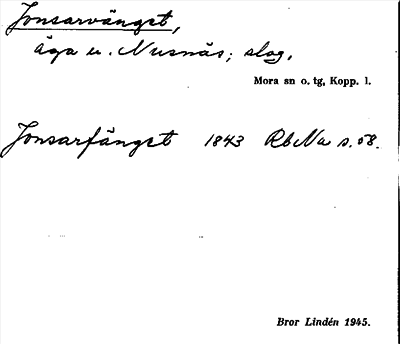 Jonsarvänget,
äga u. Nusnäs; slog.
Mora sn o. tg, Kopp. l.
Jonsarfänget 1843 RbNa s. 58.
Bror Lindén 1945.